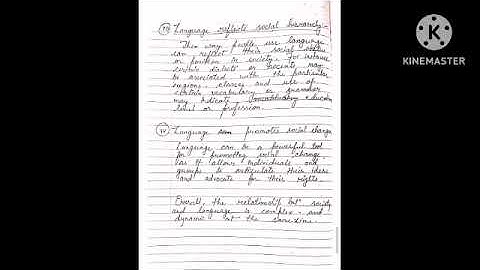 Language reflects social hierarchy:-
The way people use language
can reflect their social status
or position in society. For instance
certain dialects or accents may
be associated with the particular
regions, classes and use of
certain vocabulary or grammar
may indicate education
level or profession.
Language promotes social change
Language can be a powerful tool
for promoting social change,
as it allows individuals and
groups to articulate their ideas
and advocate for their rights.
Overall, the relationship bet society
and language is complex and
dynamic at the same time.
KINEMASTER